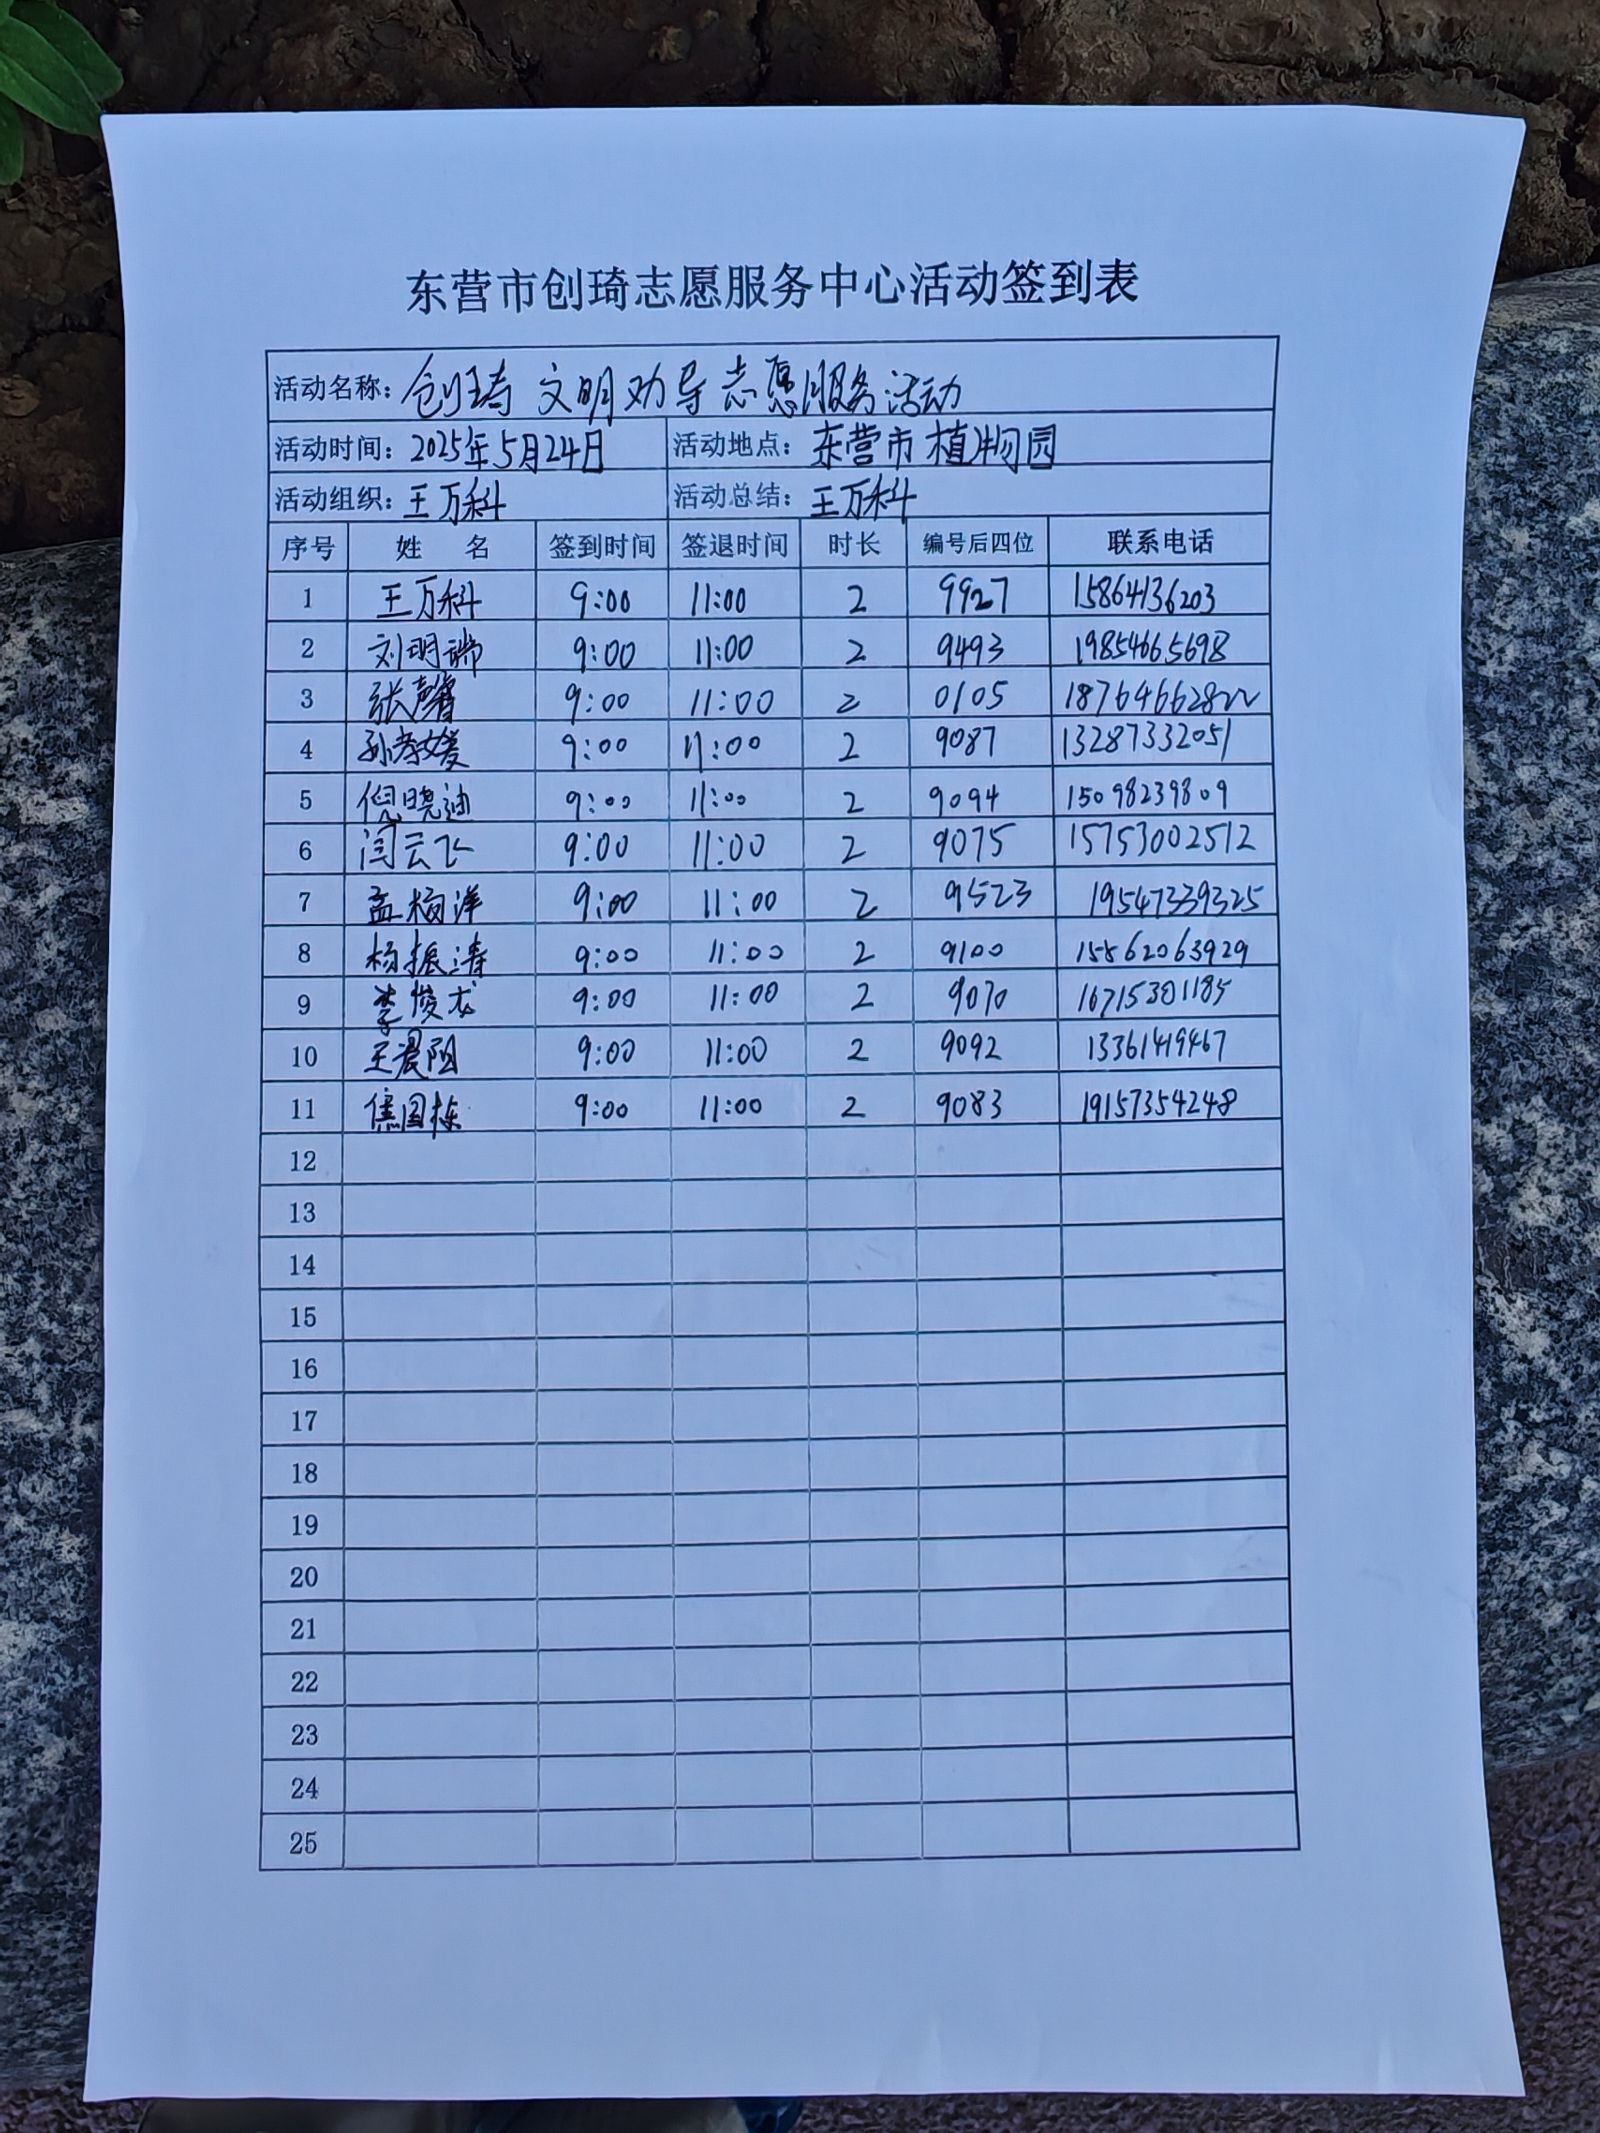 东营市创琦志愿服务中心活动签到表
活动名称: 创琦文明劝导志愿服务活动
活动时间: 2025年5月24日 活动地点: 东营市植物园
活动组织: 王万科 活动总结: 王万科
序号 姓 名 签到时间 签退时间 时长 编号后四位 联系电话
1 王万科 9:00 11:00 2 9927 15864136203
2 刘明瑞 9:00 11:00 2 9493 19854665698
3 张馨 9:00 11:00 2 0105 18764662822
4 孙孝媛 9:00 11:00 2 9087 13287332051
5 倪晓迪 9:00 11:00 2 9094 15098239809
6 闫云飞 9:00 11:00 2 9075 15753002512
7 孟杨洋 9:00 11:00 2 9523 19547339325
8 杨振涛 9:00 11:00 2 9100 15862063929
9 李俊龙 9:00 11:00 2 9070 16715301185
10 王晨阳 9:00 11:00 2 9092 13361419467
11 焦国栋 9:00 11:00 2 9083 19157354248
12
13
14
15
16
17
18
19
20
21
22
23
24
25